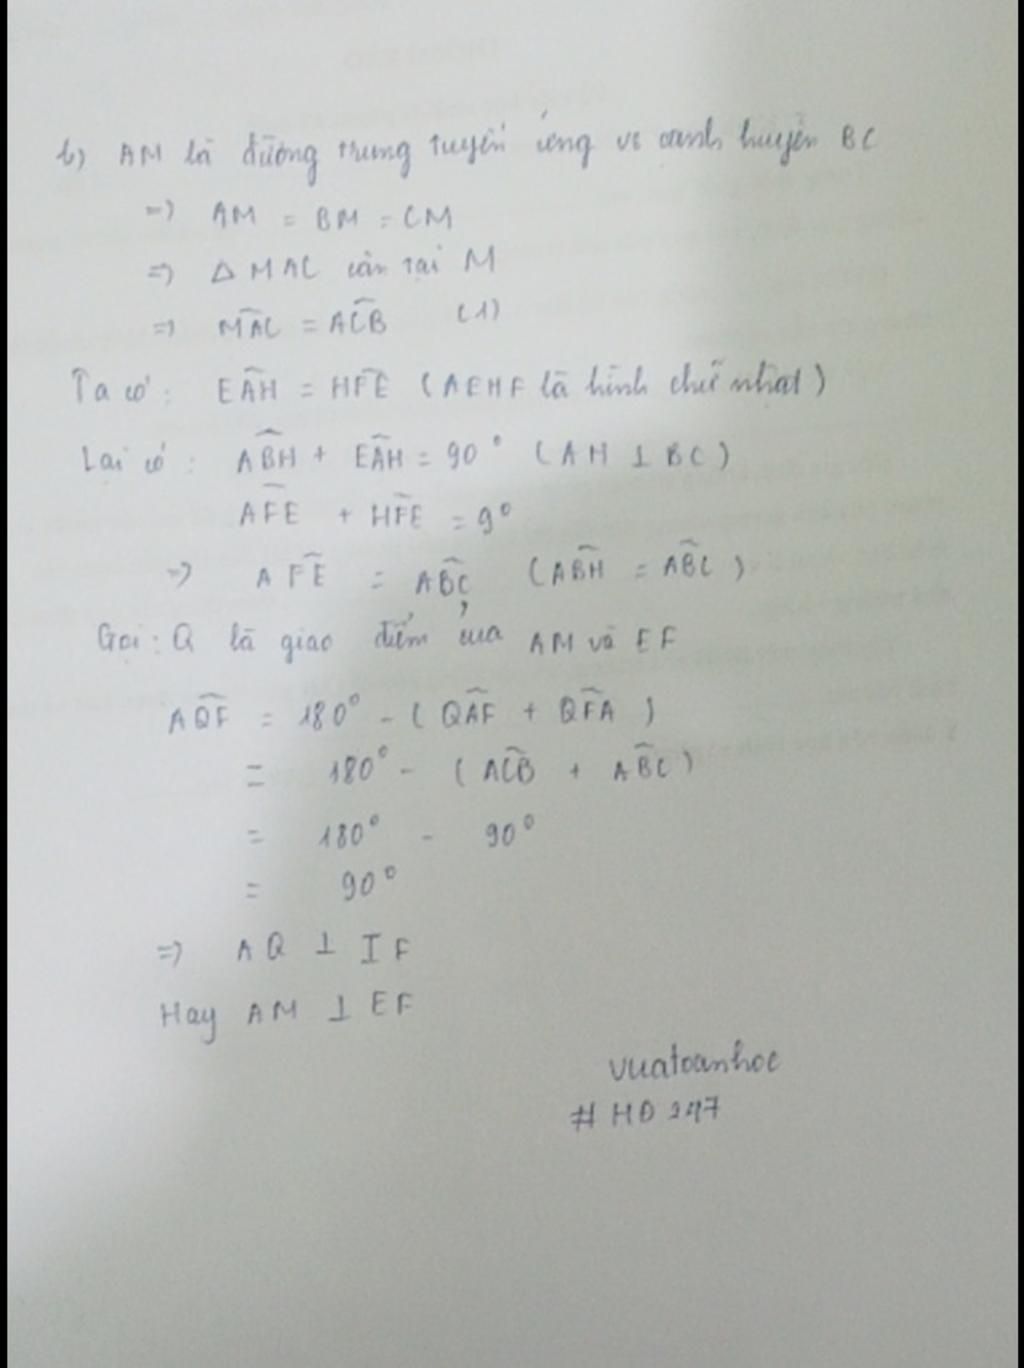 b) AM là đường trung tuyến ứng vs cạnh huyền BC
=> AM = BM = CM
=> Δ MAC cân tại M
=> MAC = ACB (1)
Ta có: EAH = HFE (AEHF là hình chữ nhật)
Lại có: ABH + EAH = 90° (AH ⊥ BC)
AFE + HFE = 9°
=> AFE = ABC (ABH = ABC)
Gọi: Q là giao điểm của AM và EF
AQF = 180° - (QAF + QFA)
= 180° - (ACB + ABC)
= 180° - 90°
= 90°
=> AQ ⊥ IF
Hay AM ⊥ EF
vuatoanhoc